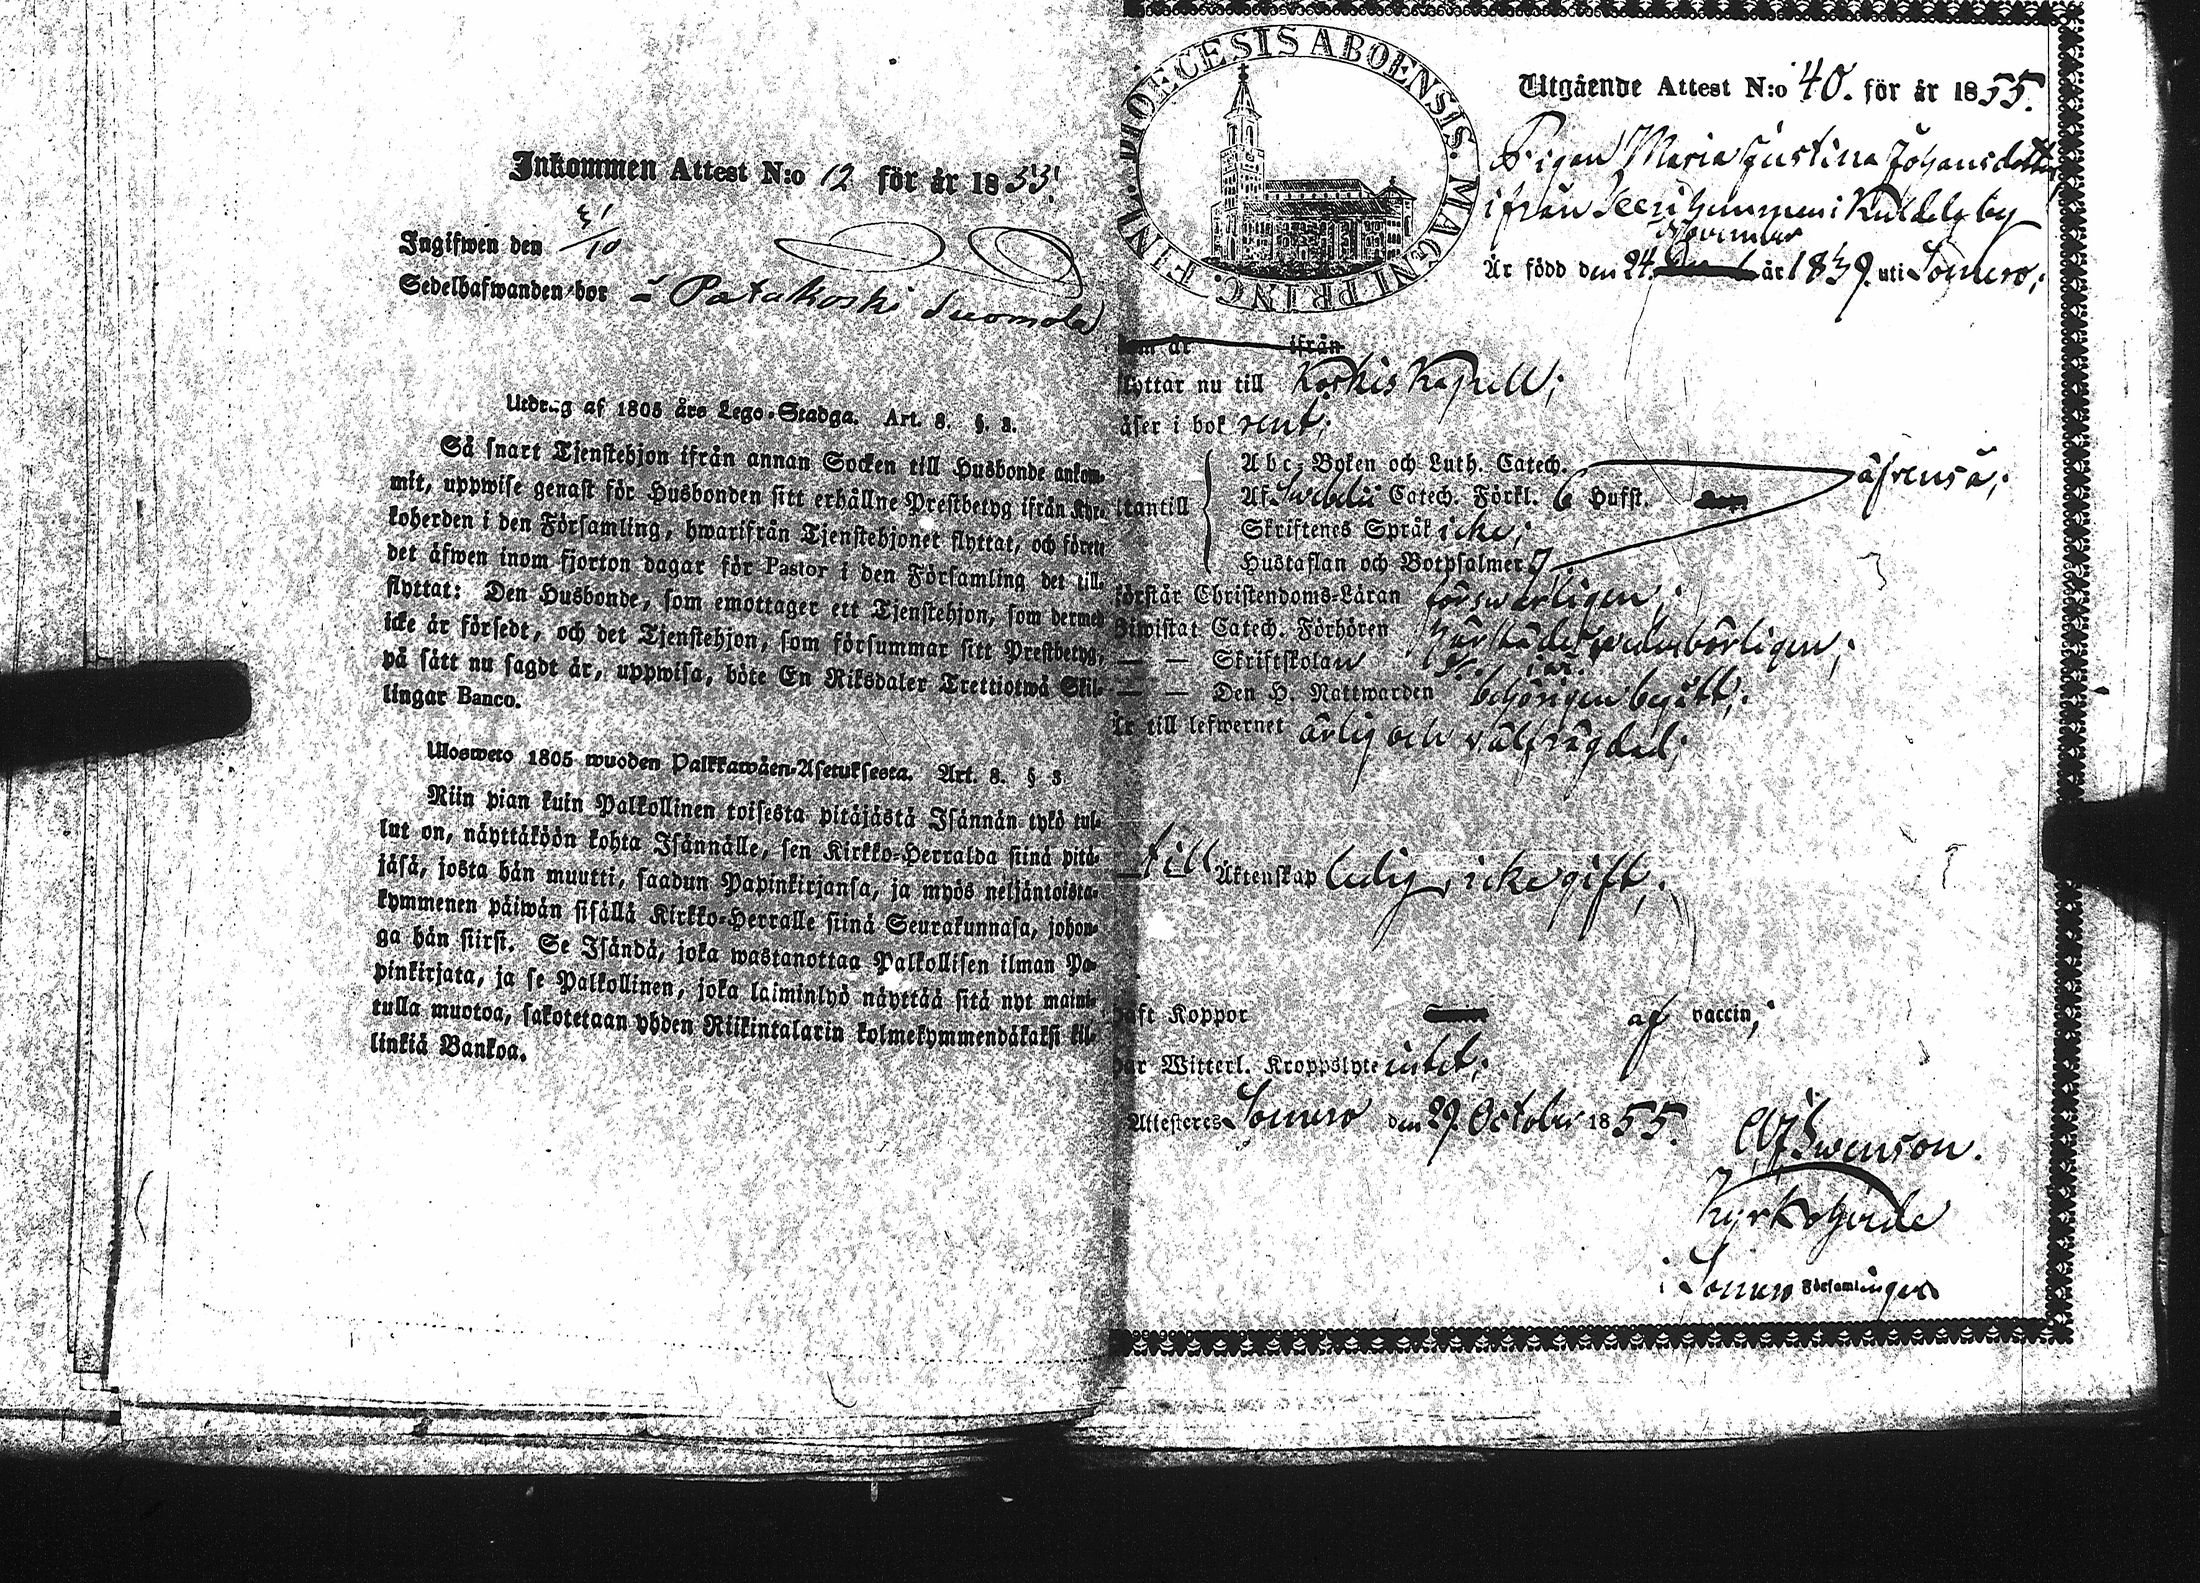 Inkommen Attest N:o 12 för år 1855.
Ingifwen den 31/10
Sedelhafwanden bor å Patakoski Suomola
Utdrag af 1805 års Lego-Stadga. Art. 8. §. 3.
Så snart Tjenstehjon ifrån annan Socken till Husbonde ankom-
mit, uppwise genast för Husbonden sitt erhållne Prestbetyg ifrån Kyr-
koherden i den Församling, hwarifrån Tjenstehjonet flyttat, och förete
det äfwen inom fjorton dagar för Pastor i den Församling det till-
flyttat: Den Husbonde, som emottager ett Tjenstehjon, som dermed
icke är försedt, och det Tjenstehjon, som försummar sitt Prestbetyg,
på sätt nu sagdt är, uppwisa, böte En Riksdaler Trettiotwå Skil-
lingar Banco.
Ulosweto 1805 wuoden Palkkawäen-Asetuksesta. Art. 8. § 3
Niin pian kuin Palkollinen toisesta pitäjästä Isännän tykö tul-
lut on, näyttäköön kohta Isännälle, sen Kirkko-Herralda siinä pitä-
jäsä, josta hän muutti, saadun Papinkirjansa, ja myös neljäntoista-
kymmenen päiwän sisällä Kirkko-Herralle siinä Seurakunnasa, johon-
ga hän siirsi. Se Isändä, joka wastanottaa Palkollisen ilman Pa-
pinkirjata, ja se Palkollinen, joka laiminlyö näyttää sitä nyt maini-
tulla muotoa, sakotetaan yhden Riikintalarin kolmekymmendäkaksi kil-
linkiä Bankoa.
DIOECESIS ABOENSIS. MAGNI PRINC. FINL.
Utgående Attest N:o 40. för år 1855.
Pigan Maria Justina Johansdotter
ifrån hemman i Kuldela by
November
Är född den 24. år 1839. uti Somero;
som är ifrån
flyttar nu till Koskis Kapell;
läser i bok rent;
Abc-Boken och Luth. Catech.
äfrenså;
utantill Af Swebelii Catech. Förkl. 6 Hufst.
Skriftenes Språk icke;
Hustaflan och Botpsalmer
förstår Christendoms-Läran förswarligen;
Biwistat Catech. Förhören härstädes wederbörligen;
— — Skriftskolan
— — Den H. Nattwarden behörigen begått;
Är till lefwernet ärlig och välfrägdad;
till Äktenskap ledig, icke gift;
haft Koppor af vaccin;
har Witterl. Kroppslyte intet;
Attesteres Somero den 29. October 1855.
Swenson.
Kyrkoherde
i Somero Församlingar